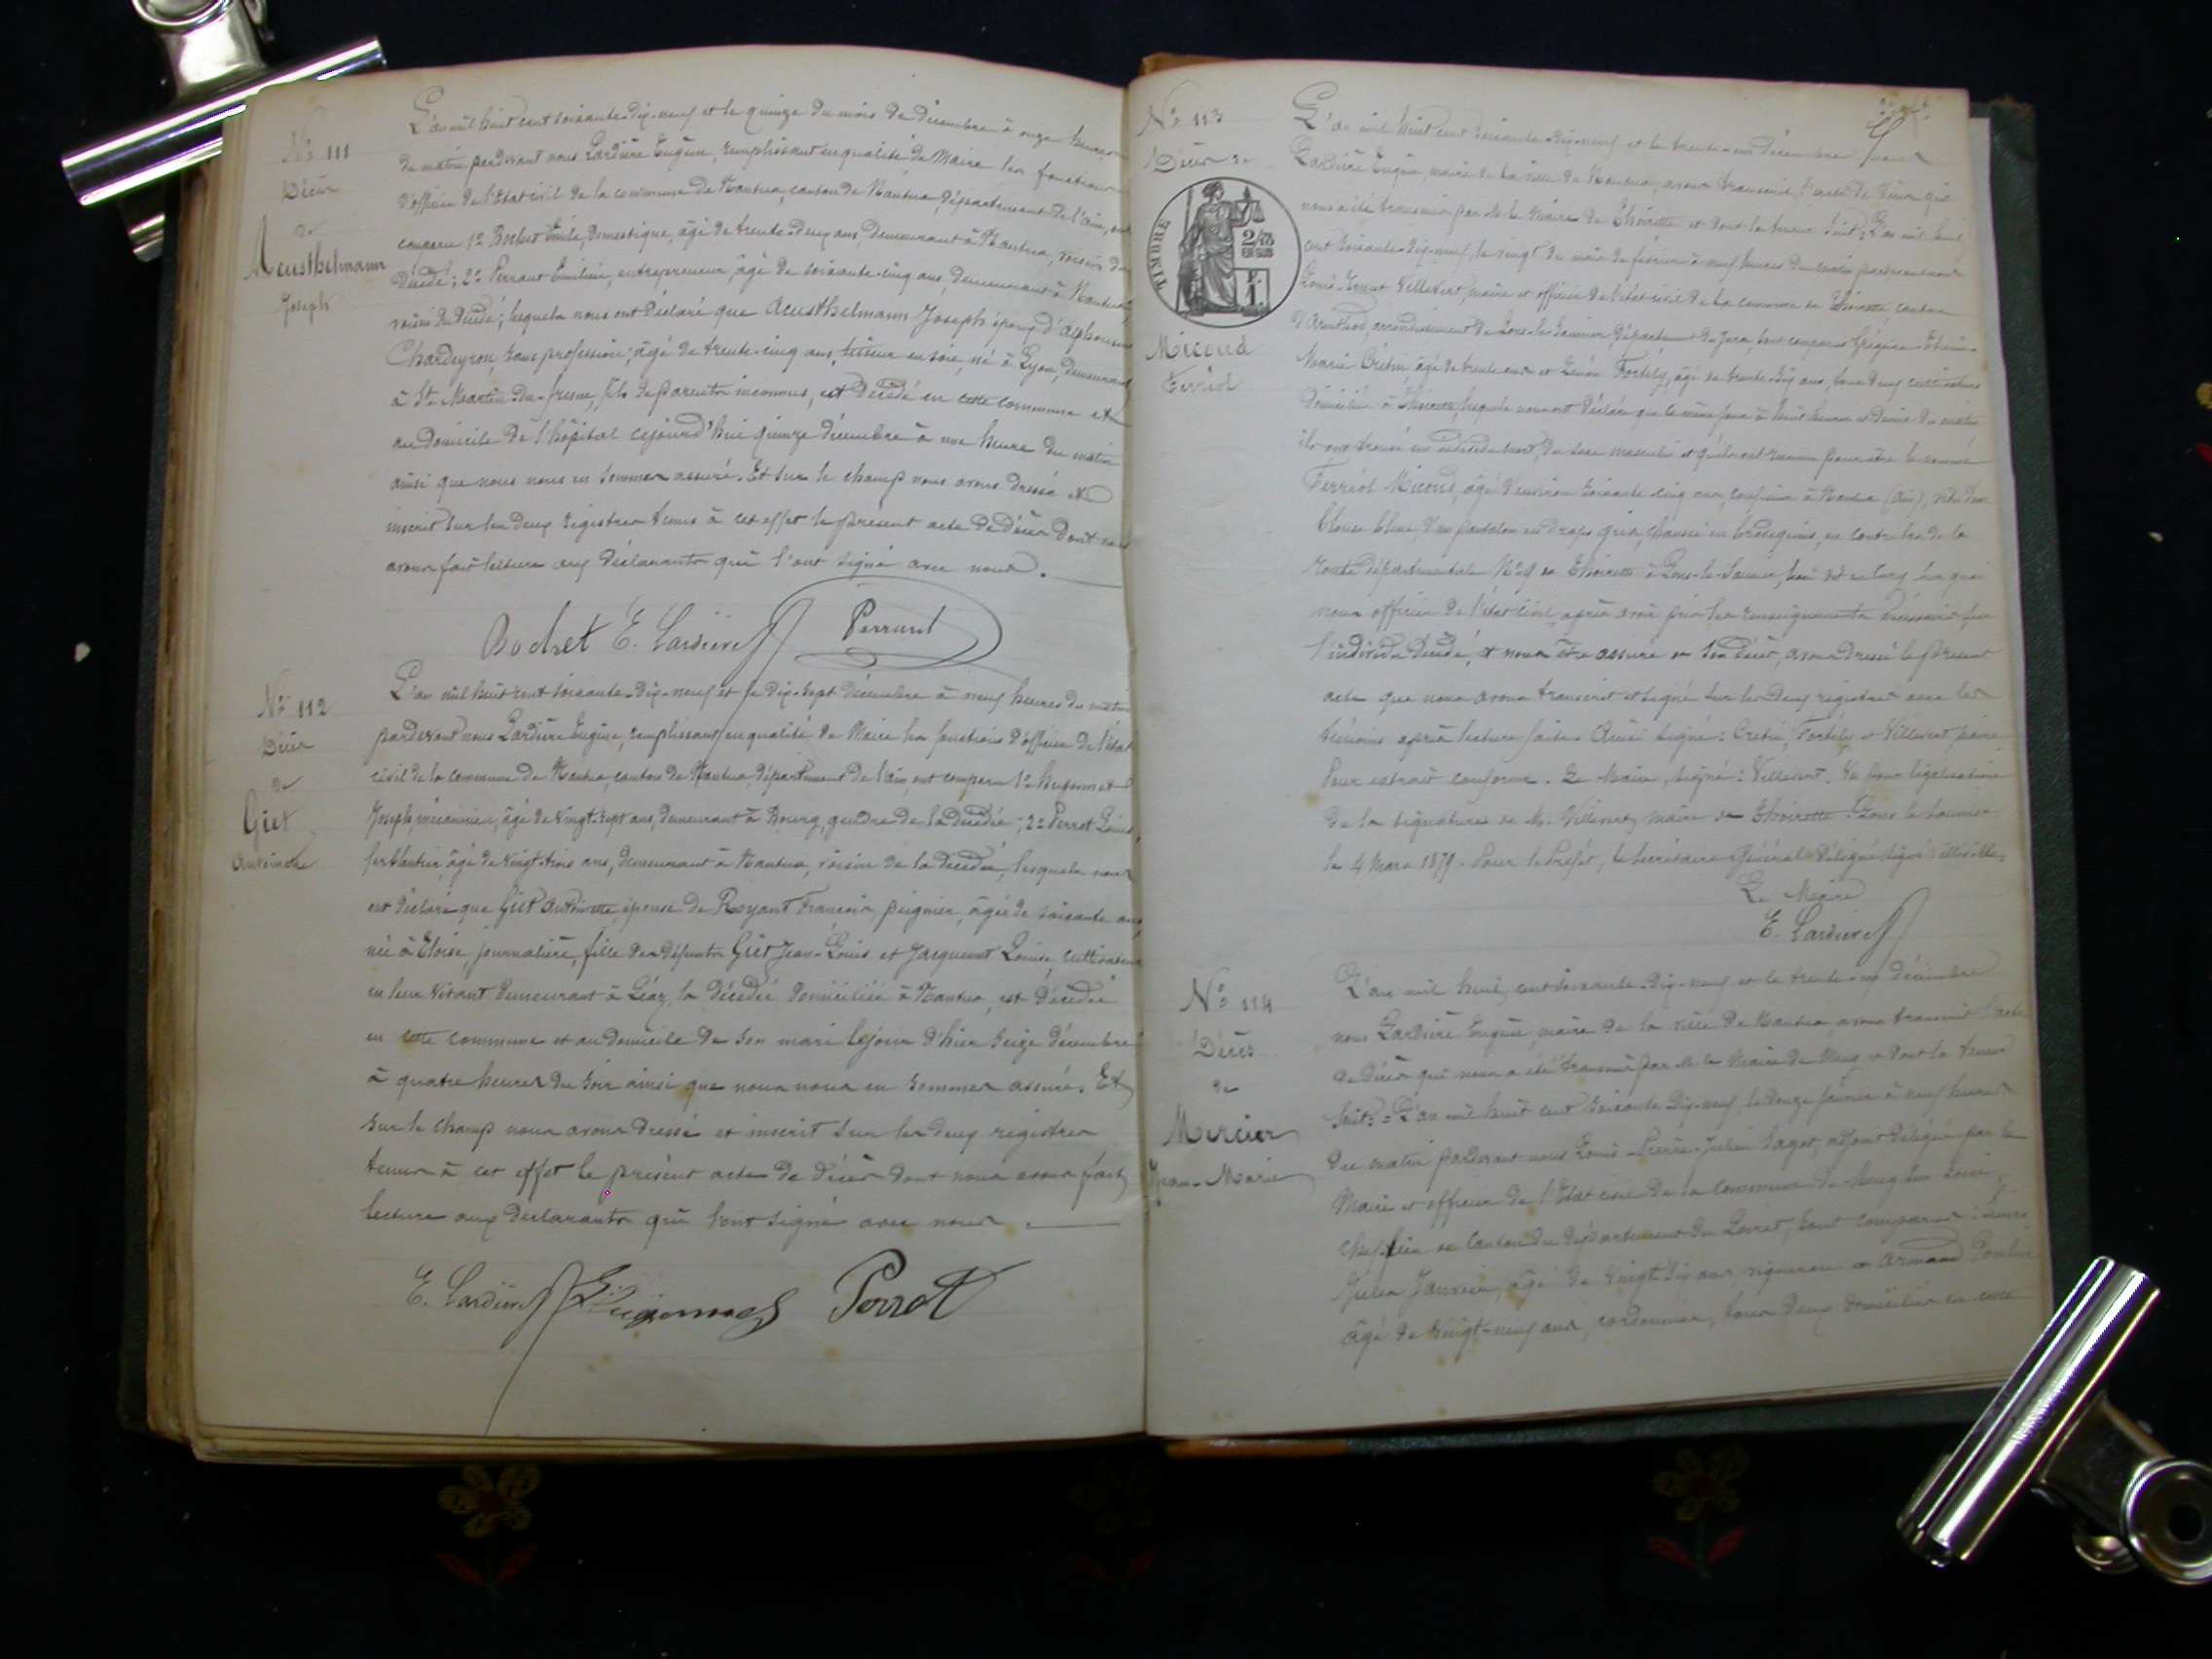 N° 111
Décès
de
Acusthelmann
Joseph
L'an mil huit cent soixante-dix-neuf et le quinze du mois de décembre à onze heures
du matin pardevant nous Lardière Eugène, remplissant en qualité de Maire les fonctions
d'officier de l'Etat civil de la commune de Nantua, canton de Nantua, département de l'Ain, ont
comparu 1° Bochet Emile, domestique, âgé de trente-deux ans, demeurant à Nantua, voisin du
décédé; 2° Perraut Emilien, entrepreneur, âgé de soixante-cinq ans, demeurant à Nantua,
voisin du décédé; lesquels nous ont déclaré que Acusthelmann Joseph époux d'Alphonsine
Chardeyron, sans profession; âgé de trente-cinq ans, tisseur en soie, né à Lyon, demeurant
à St Martin-du-fresne, fils de parents inconnus, est décédé en cette commune et
au domicile de l'hôpital cejourd'hui quinze décembre à une heure du matin
ainsi que nous nous en sommes assuré. Et sur le champ nous avons dressé et
inscrit sur les deux registres tenus à cet effet le présent acte de décès dont nous
avons fait lecture aux déclarants qui l'ont signé avec nous.
Bochet E. Lardière Perraud
N° 112
Décès
de
Giet
Antoinette
L'an mil huit cent soixante-dix-neuf et le dix-sept décembre à neuf heures du matin
pardevant nous Lardière Eugène, remplissant en qualité de Maire les fonctions d'officier de l'état
civil de la commune de Nantua, canton de Nantua, département de l'ain, ont comparu 1° Hugonnet
Joseph, mécanicien, âgé de vingt-sept ans, demeurant à Bourg, gendre de la décédée; 2° Perrot Louis,
ferblantier, âgé de vingt trois ans, demeurant à Nantua, voisin de la décédée, lesquels nous
ont déclaré que Giet Antoinette, épouse de Royant François, peignier, âgée de soixante ans,
née à Eloise, journalière, fille des défunts Giet Jean-Louis et Jacquemet Louise, cultivateurs
en leur vivant demeurant à Léaz, la décédée domiciliée à Nantua, est décédée
en cette commune et au domicile de son mari lejour d'hier seize décembre
à quatre heures du soir ainsi que nous nous en sommes assuré. Et
sur le champ nous avons dressé et inscrit sur les deux registres
tenus à cet effet le présent acte de décès dont nous avons fait
lecture aux déclarants qui l'ont signé avec nous.
E. Lardière Hugonnet Perrot
N° 113
Décès de
TIMBRE
2/10
EN SUS
1 F.
Micoud
Ferriol
L'an mil huit cent soixante dix-neuf et le trente-un décembre nous
Lardière Eugène, maire de la ville de Nantua, avons transcrit l'acte de décès qui
nous a été transmis par M. le Maire de Thoirette et dont la teneur suit: L'an mil huit
cent soixante-dix-neuf, le vingt du mois de février à neuf heures du matin pardevant nous
Louis Ernest Villevert, maire et officier de l'état civil de la commune de Thoirette canton
d'Arinthod, arrondissement de Lons-le-Saunier département du Jura, sont comparus Grégoire-
Marie Crétin, âgé de trente ans et Fortély, âgé de trente-six ans, tous deux cultivateurs
domiciliés à Thoirette, lesquels nous ont déclaré que le même jour à huit heures et demie du matin
ils ont trouvé un individu mort, du sexe masculin et qu'ils ont reconnu pour être le nommé
Ferriol Micoud, âgé d'environ soixante cinq ans, à Nantua (Ain), vêtu d'une
blouse bleue, d'un pantalon en drap gris, chaussé en brodequins, en contre-bas de la
route départementale N° 9 de Thoirette à Lons-le-Saunier, sur quoi
nous officier de l'état civil après avoir pris les renseignements nécessaires sur
l'individu décédé, et nous être assuré de son décès, avons dressé le présent
acte que nous avons transcrit et signé sur les deux registres avec les
témoins après lecture faite. Ainsi signé: Crétin, Fortély et Villevert, maire
Pour extrait conforme. Le Maire, signé: Villevert. Vu pour légalisation
de la signature de M. Villevert, maire de Thoirette. Lons le Saunier
le 4 Mars 1879. Pour le Préfet, le Secrétaire Général délégué signé:
Le Maire
E. Lardière
N° 114
Décès
de
Mercier
Jean-Marie
L'an mil huit cent soixante-dix-neuf et le trente-un décembre
nous Lardière Eugène, maire de la ville de Nantua avons transcrit l'acte
de décès qui nous a été transmis par M. le Maire de Meung et dont la teneur
suit: L'an mil huit cent soixante dix-neuf, le douze janvier à neuf heures
du matin pardevant nous Louis-Pierre-Julien Sagot, adjoint délégué par le
Maire et officier de l'Etat civil de la commune de Meung sur Loire,
chef-lieu de canton du département du Loiret, sont comparus:
Julien Janvier, âgé de vingt-six ans vigneron et Armand
âgé de vingt-neuf ans, cordonnier, tous deux domiciliés en cette